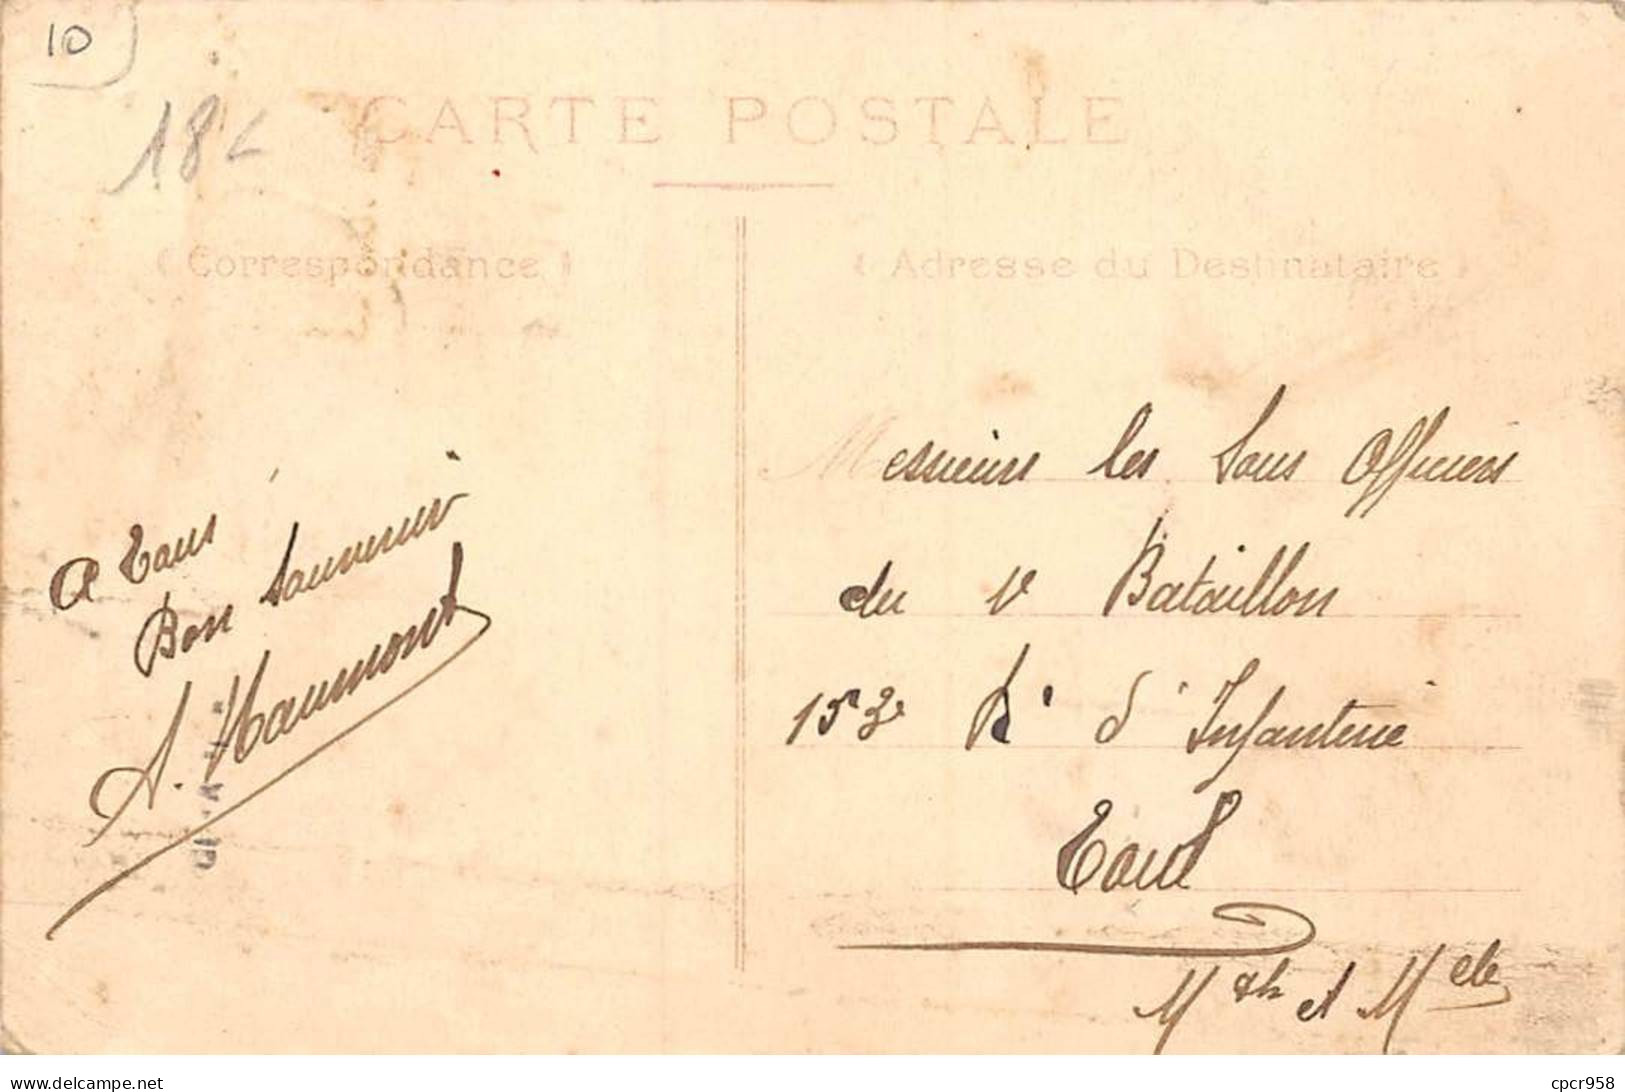 10
18
CARTE POSTALE
( Correspondance )
( Adresse du Destinataire )
A Tous
Bon Souvenir
A. Haumont
Messieurs les Sous Officiers
du Bataillon
153e Rt d'Infanterie
Toul
et
www.delcampe.net
cpcr958